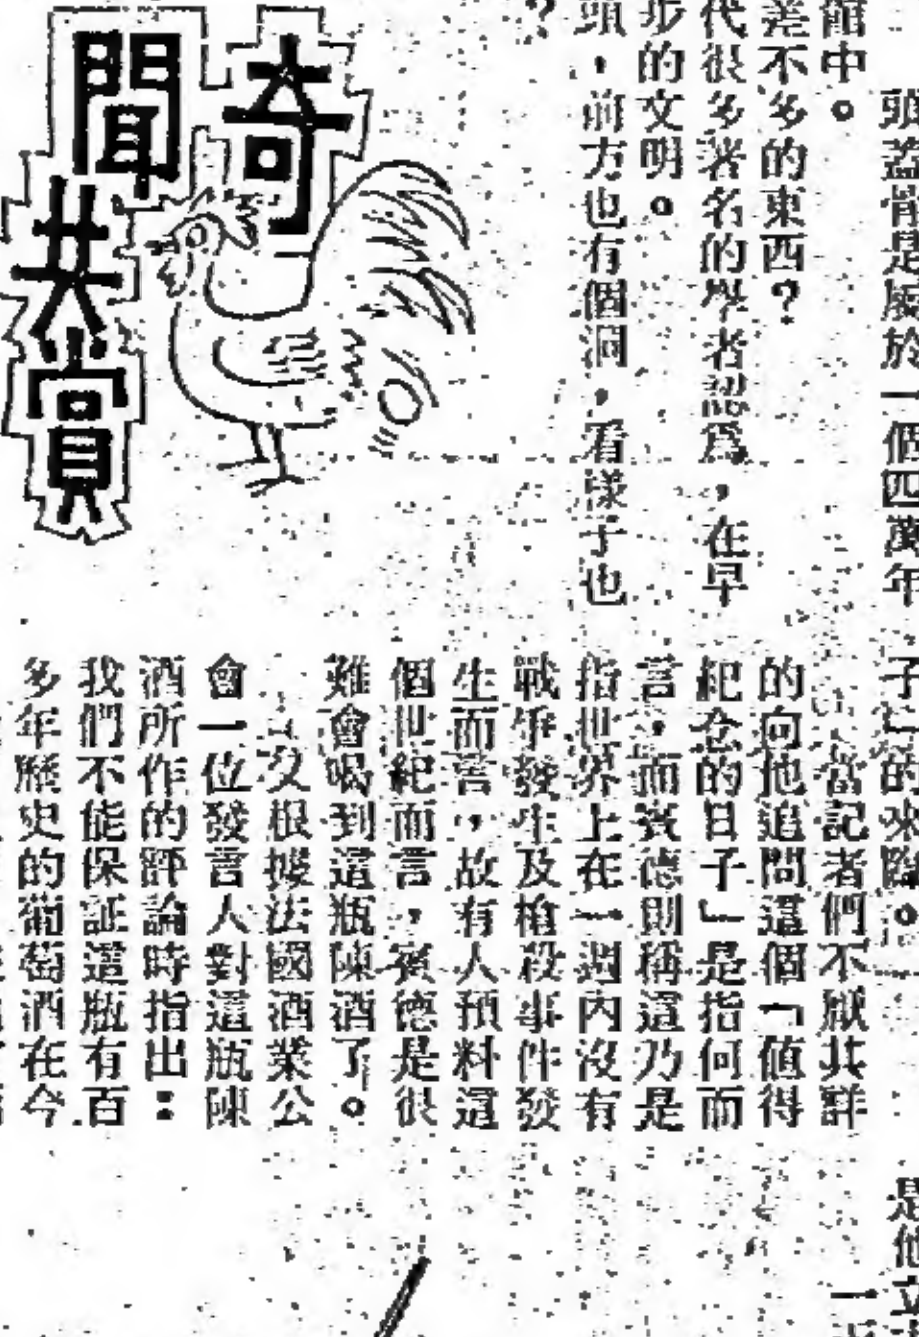 頭蓋骨是屬於一個四萬年
館中。
差不多的東西?
代很多著名的學者認爲,在早
步的文明。
頭,前方也有個洞,看樣子也
?
奇聞共賞
子」的來臨。
當記者們不厭其詳
的向他追問這個「值得
紀念的日子」是指何而
言,而賓德則稱這乃是
指世界上在一週內沒有
戰爭發生及槍殺事件發
生而言,故有人預料這
個世紀而言,賓德是很
難會喝到這瓶陳酒了。
又根據法國酒業公
會一位發言人對這瓶陳
酒所作的評論時指出:
我們不能保証這瓶有百
多年歷史的葡萄酒在今
是他立